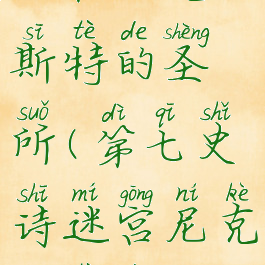 sī tè de shèng
斯特的圣
suǒ dì qī shǐ
所(第七史
shī mí gōng ní kè
诗迷宫尼克